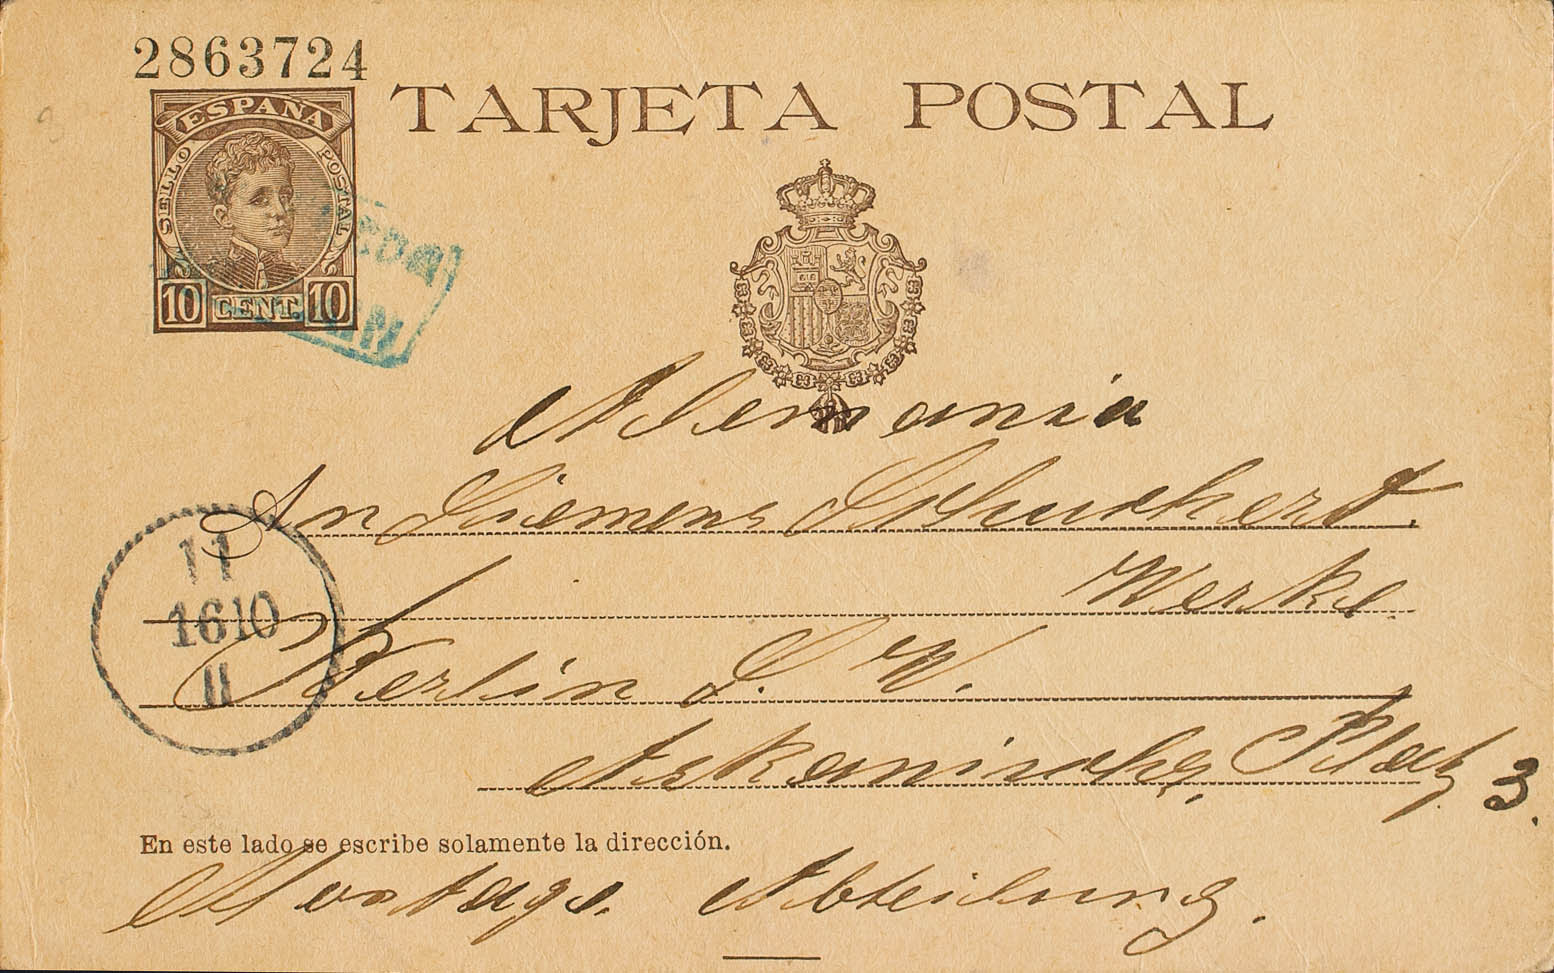 2863724
TARJETA POSTAL
ESPAÑA
SELLO POSTAL
10 CENT. 10
Alemania
An Siemens Schuckert.
Werke
Berlin S. W.
Askanische Platz 3.
11
1610
11
En este lado se escribe solamente la dirección.
Montage. Abteilung.